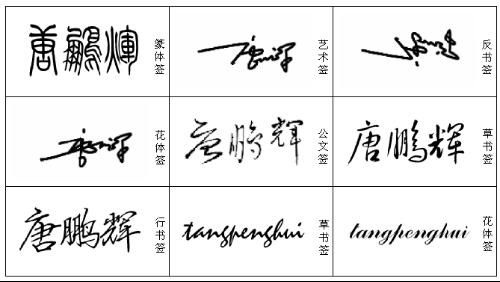 唐鹏辉 篆体签
唐鹏辉 艺术签
反书签
唐鹏辉 花体签
唐鹏辉 公文签
唐鹏辉 草书签
唐鹏辉 行书签
tangpenghui 草书签
tangpenghui 花体签